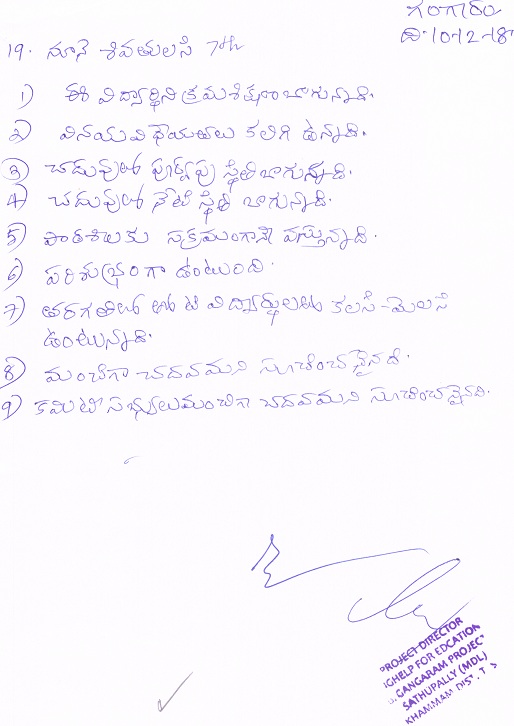 గంగారం
ది 10-12-18
19. నూనె శివతులసి 7th
1) ఈ విద్యార్థిని క్రమశిక్షణ బాగున్నది.
2) వినయ విధేయతలు కలిగి ఉన్నది.
3) చదువులో పూర్వపు స్థితి బాగున్నది.
4) చదువులో నేటి స్థితి బాగున్నది.
5) పాఠశాలకు సక్రమంగానే వస్తున్నది.
6) పరిశుభ్రంగా ఉంటుంది.
7) తరగతిలో తోటి విద్యార్థులతో కలసి-మెలసి
ఉంటున్నది.
8) మంచిగా చదవమని సూచించనైనది.
9) కమిటీ సభ్యులు మంచిగా చదవమని సూచించనైనది.
PROJECT DIRECTOR
HELP FOR EDCATION
GANGARAM PROJEC
SATHUPALLY (MDL)
KHAMMAM DIST. T S